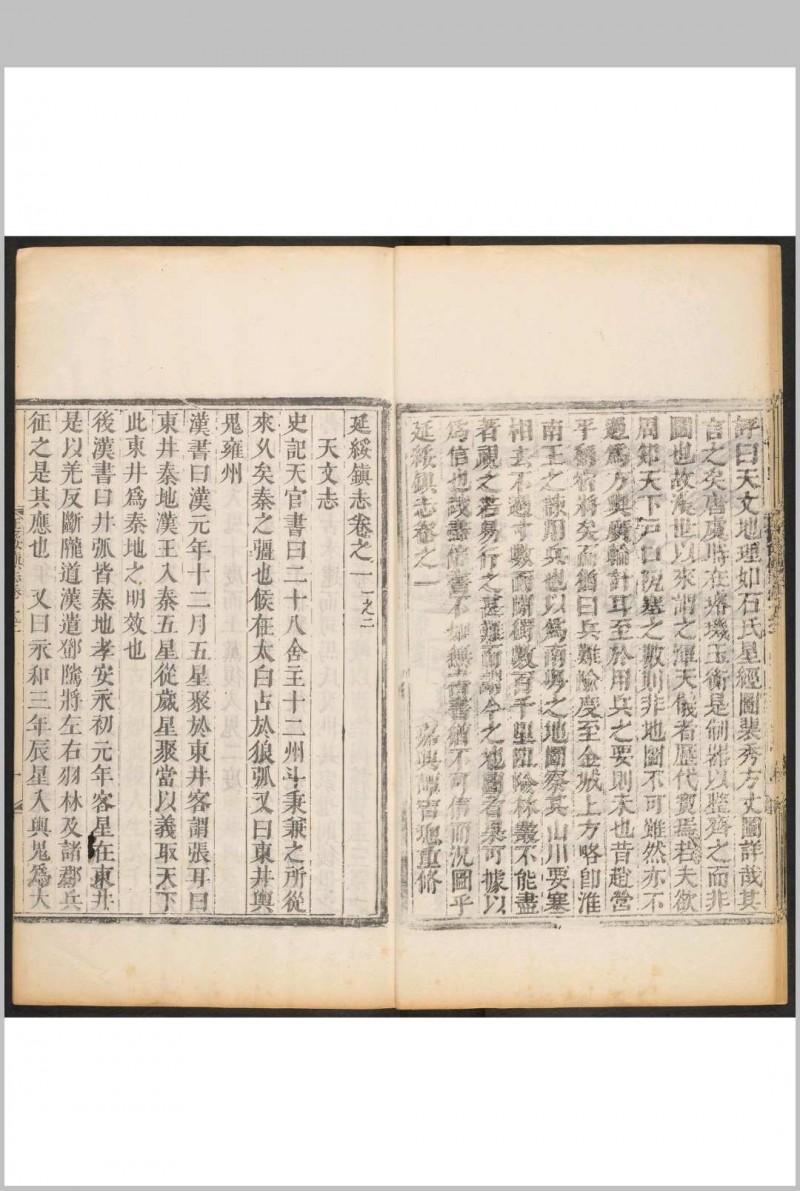 評曰天文地理如石氏星經圖裴秀方丈圖詳哉其
言之矣唐虞時在璿璣玉衡是制器以整齊之而非
圖也故後世以來謂之渾天儀者歷代寶焉若夫欲
周知天下戸口阨塞之數則非地圖不可雖然亦不
過為方輿廣輪計耳至於用兵之要則未也昔趙營
平猶宿將矣而猶曰兵難隃度至金城上方略卽淮
南王之諫用兵也以為南粤之地圖察其山川要塞
相去不過寸數而間獨數百千里阻險林叢不能盡
著視之若易行之甚難而謂今之地圖者果可據以
為信也哉盡信書不如無書書猶不可信而況圖乎
嘉興譚吉璁重修
延綏鎮志卷之一
延綏鎮志卷之一 一之二
天文志
史記天官書曰二十八舍主十二州斗秉兼之所從
來久矣秦之疆也候在太白占於狼弧又曰東井輿
鬼雍州
漢書曰漢元年十二月五星聚於東井客謂張耳曰
東井秦地漢王入秦五星從歲星聚當以義取天下
此東井為秦地之明效也
後漢書曰井弧皆秦地孝安永初元年客星在東井
是以羌反斷隴道漢遣鄧騭將左右羽林及諸郡兵
征之是其應也 又曰永和三年辰星入輿鬼為大